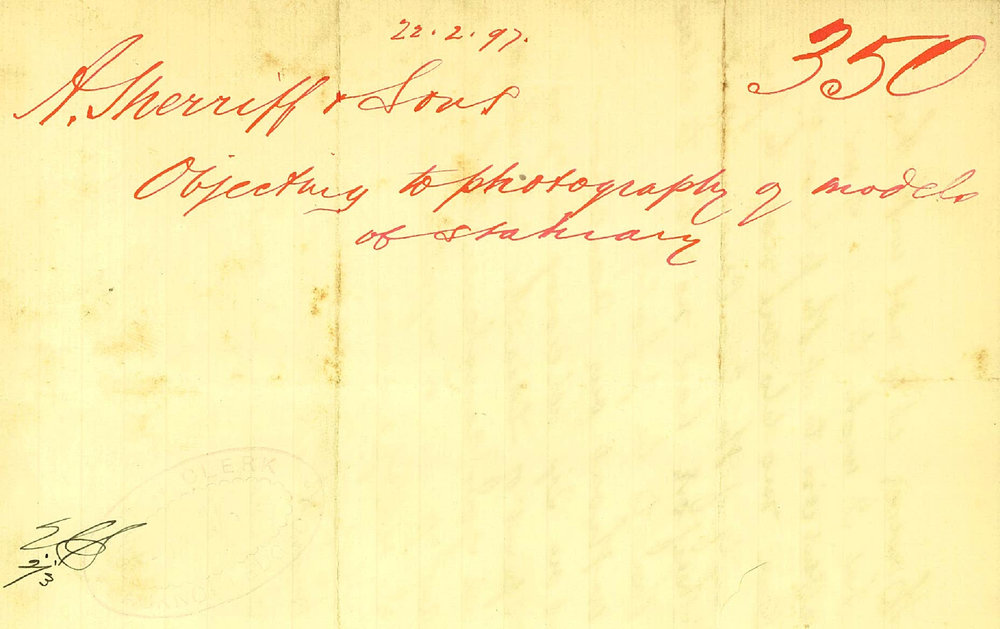 22.2.97.
350
A. Sherriff & Sons
Objecting to photography of models
of statuary
CLERK
2/3